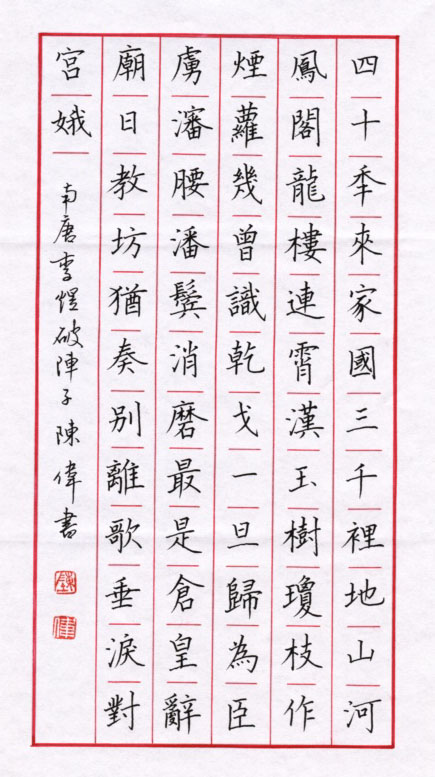 四十秊來家國三千裡地山河
鳳閣龍樓連霄漢玉樹瓊枝作
煙蘿幾曾識乾戈一旦歸為臣
虜瀋腰潘鬢消磨最是倉皇辭
廟日教坊猶奏別離歌垂淚對
宮娥 南唐李煜破陣子陳偉書